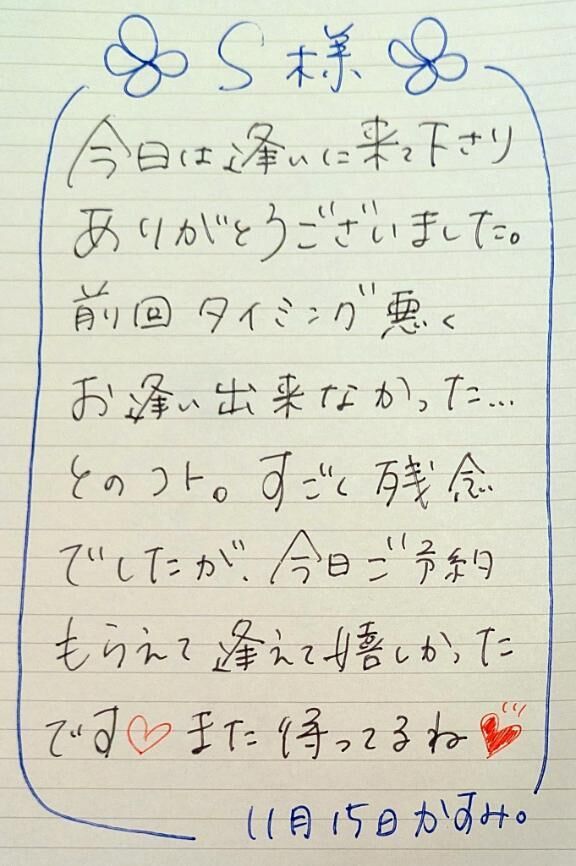 S様
今日は逢いに来て下さり
ありがとうございました。
前回タイミング悪く
お逢い出来なかった…
とのコト。すごく残念
でしたが、今日ご予約
もらえて逢えて嬉しかった
です♡また待ってるね♥
11月15日かすみ。